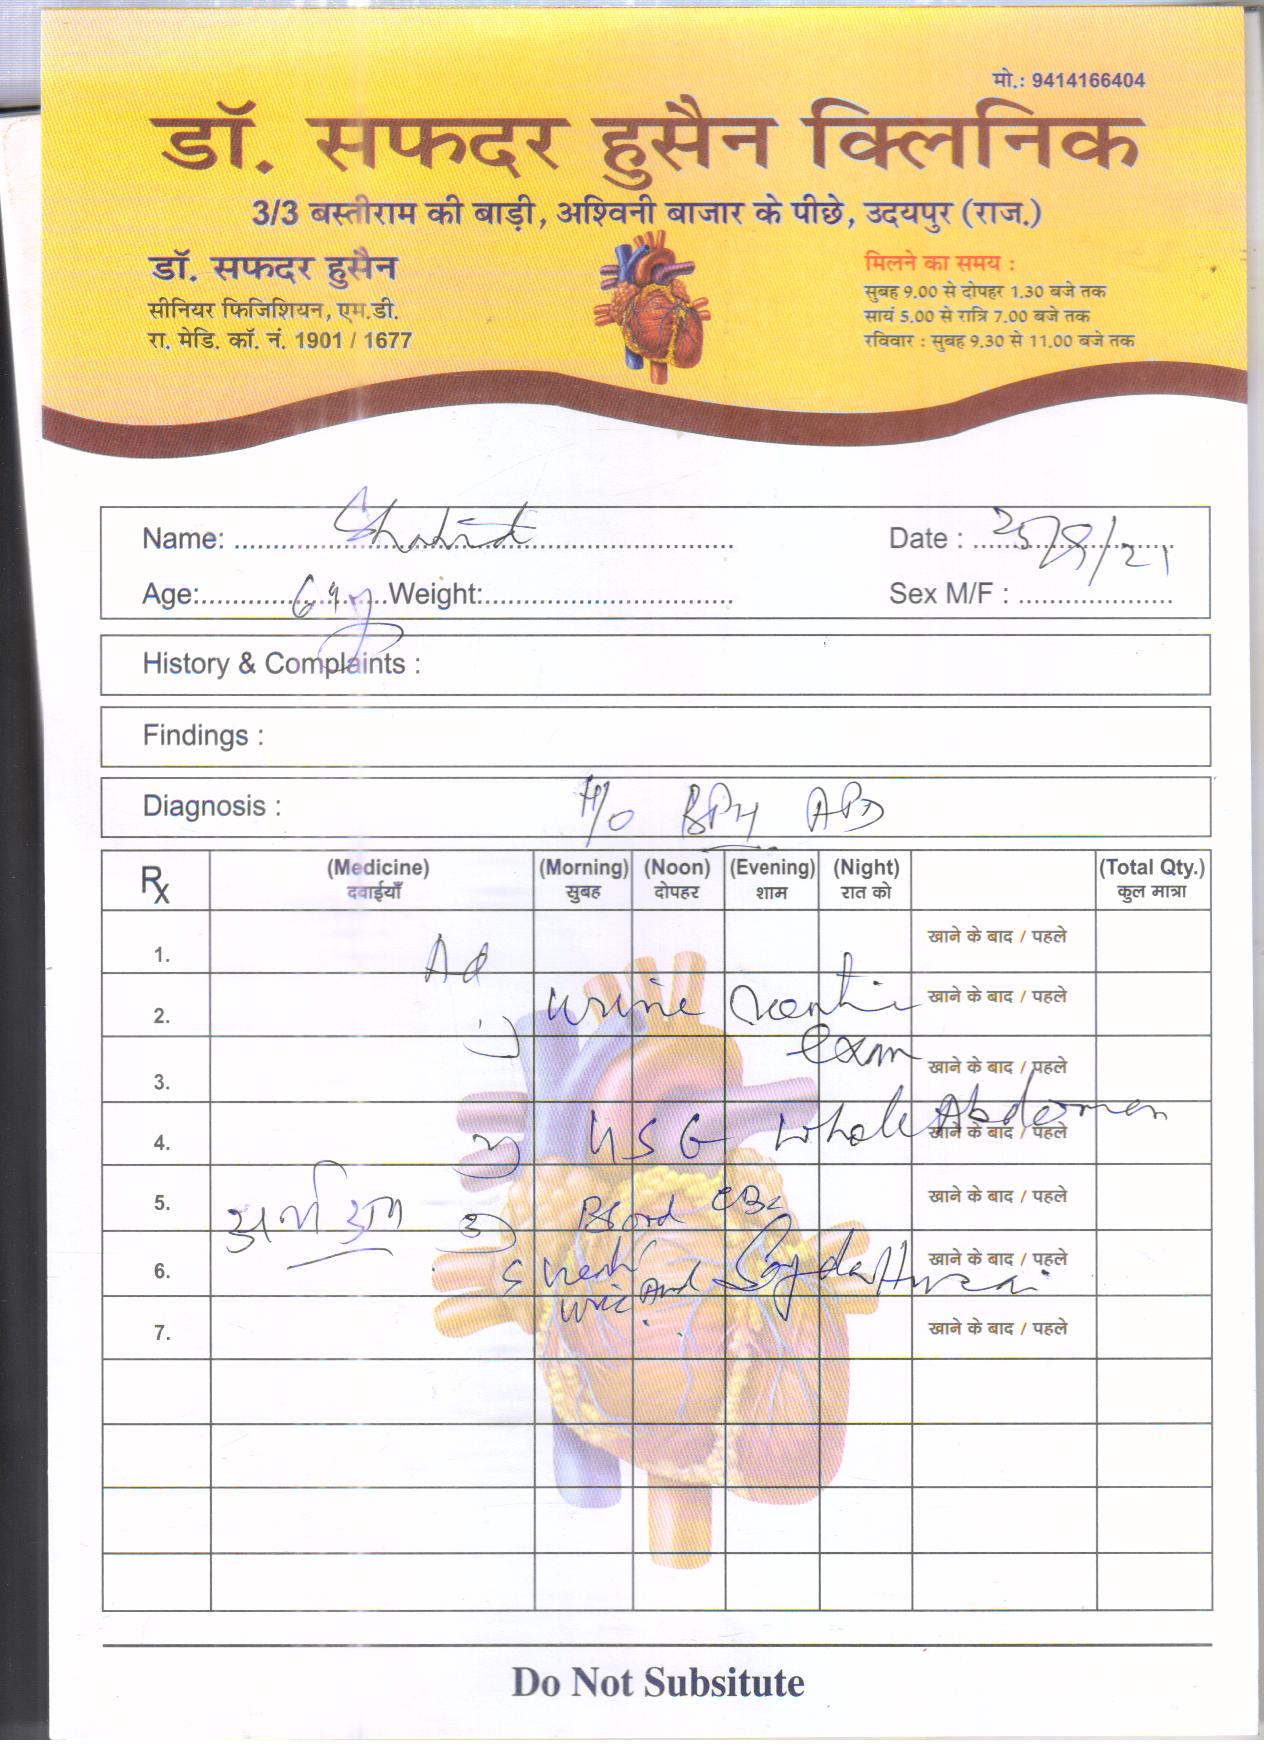 मो.: 9414166404
डॉ. सफदर हुसैन क्लिनिक
3/3 बस्तीराम की बाड़ी, अश्विनी बाजार के पीछे, उदयपुर (राज.)
डॉ. सफदर हुसैन
सीनियर फिजिशियन, एम.डी.
रा. मेडि. कॉ. नं. 1901 / 1677
मिलने का समय :
सुबह 9.00 से दोपहर 1.30 बजे तक
सायं 5.00 से रात्रि 7.00 बजे तक
रविवार : सुबह 9.30 से 11.00 बजे तक
Name: Shahid Date :
Age: Weight: Sex M/F :
History & Complaints :
Findings :
Diagnosis : H/O BPH APD
Rx (Medicine) (Morning) (Noon) (Evening) (Night) (Total Qty.)
दवाईयाँ सुबह दोपहर शाम रात को कुल मात्रा
1. खाने के बाद / पहले
Ad
2. 1) Urine खाने के बाद / पहले
exam
3. खाने के बाद / पहले
4. 2) USG Whole Abdomen खाने के बाद / पहले
5. 3) Blood CBC खाने के बाद / पहले
6. खाने के बाद / पहले
7. खाने के बाद / पहले
Do Not Subsitute